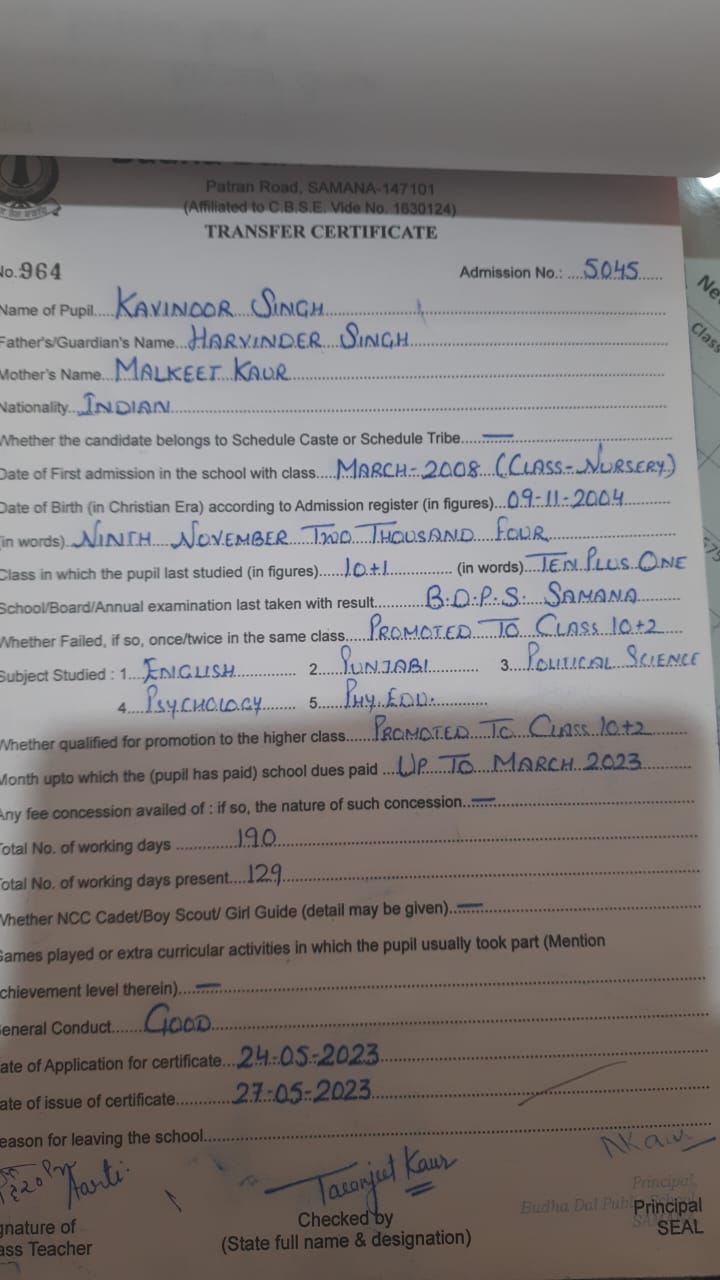 Patran Road, SAMANA-147101
(Affiliated to C.B.S.E. Vide No. 1630124)
TRANSFER CERTIFICATE
No. 964 Admission No.: 5045
Name of Pupil KAVINOOR SINGH
Father's/Guardian's Name HARVINDER SINGH
Mother's Name MALKEET KAUR
Nationality INDIAN
Whether the candidate belongs to Schedule Caste or Schedule Tribe —
Date of First admission in the school with class MARCH-2008 (CLASS-NURSERY)
Date of Birth (in Christian Era) according to Admission register (in figures) 09-11-2004
(in words) NINTH NOVEMBER TWO THOUSAND FOUR
Class in which the pupil last studied (in figures) 10+1 (in words) TEN PLUS ONE
School/Board/Annual examination last taken with result B.D.P.S. SAMANA
Whether Failed, if so, once/twice in the same class PROMOTED TO CLASS 10+2
Subject Studied : 1. ENGLISH 2. PUNJABI 3. POLITICAL SCIENCE
4. PSYCHOLOGY 5. PHY. EDD.
Whether qualified for promotion to the higher class PROMOTED TO CLASS 10+2
Month upto which the (pupil has paid) school dues paid UP TO MARCH 2023
Any fee concession availed of : if so, the nature of such concession —
Total No. of working days 190
Total No. of working days present 129
Whether NCC Cadet/Boy Scout/ Girl Guide (detail may be given) —
Games played or extra curricular activities in which the pupil usually took part (Mention
achievement level therein) —
General Conduct GOOD
Date of Application for certificate 24-05-2023
Date of issue of certificate 27-05-2023
Reason for leaving the school
Aarti Taranjeet Kaur NKaur
Principal,
Budha Dal Public School
Signature of Checked by Principal
Class Teacher (State full name & designation) SEAL
Class